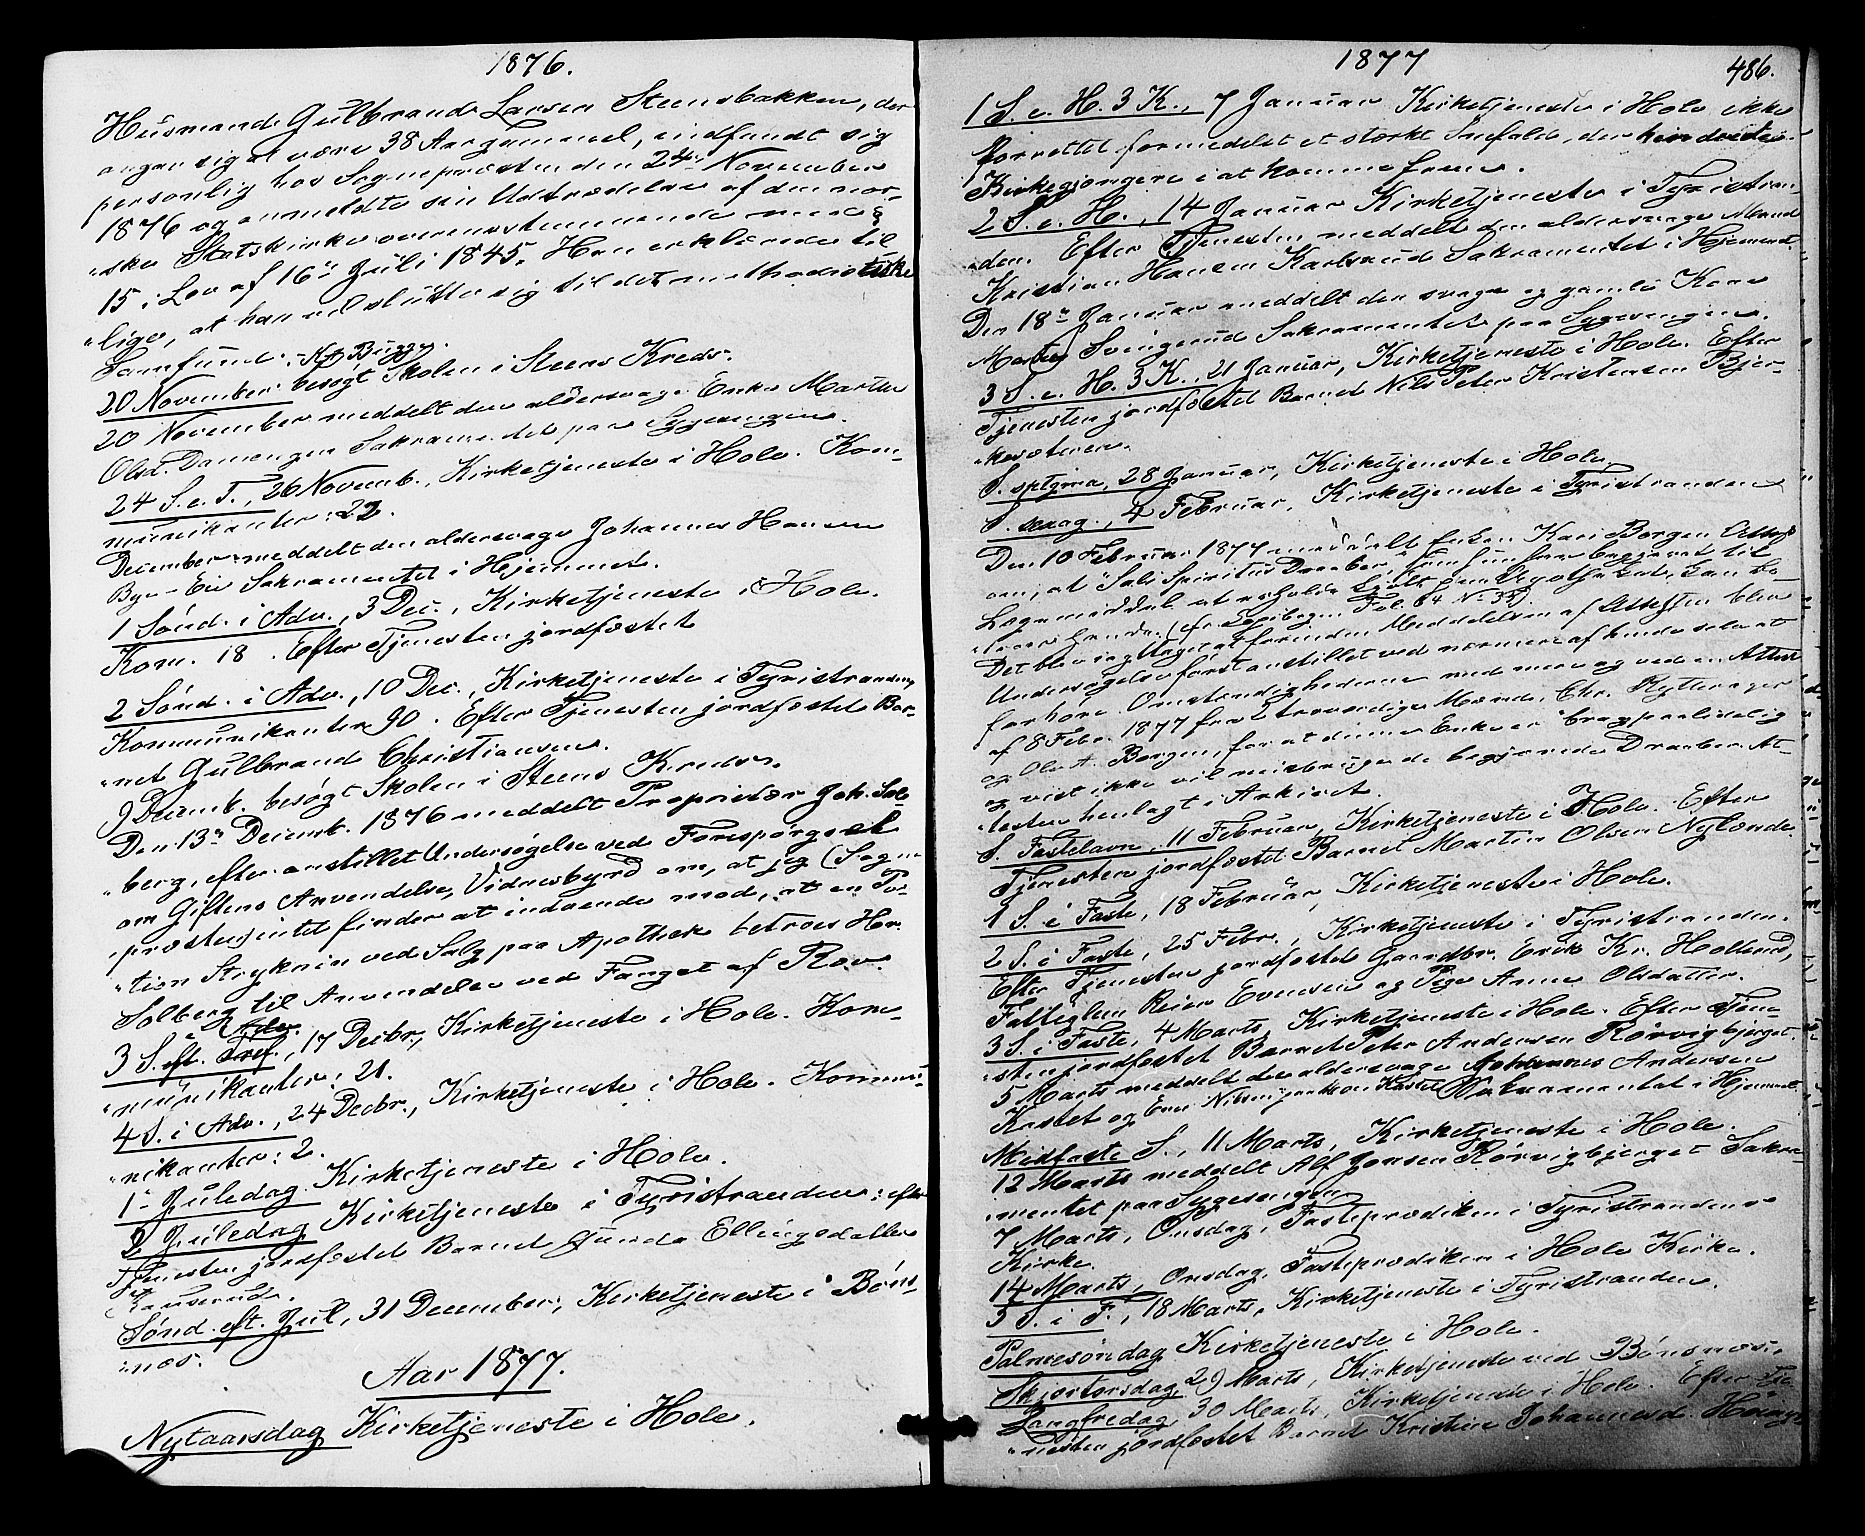 1876.
Husmand Gulbrand Larsen Steensbakken, der
angav sig at være 38 Aar gammel, indfandt sig
personlig hos Sognepræsten den 24de November
1876 og anmeldte sin Udtrædelse af den nor-
ske Statskirke overensstemmende med §
15 i Lov af 16de Juli 1845. Han erklærede til-
lige, at han vil slutte sig til det methodistiske
Samfund. Bugge.
20 November besøgt Skolen i Steens Kreds.
20 November meddelt den aldersvage Enke Marthe
Olsd. Damengen Sakramentet paa Sygesengen.
24 S. e. T., 26 Novemb., Kirketjeneste i Hole. Kom-
munikanter: 22.
December meddelt den aldersvage Johannes Hansen
Bye-Eie Sakramentet i Hjemmet.
1 Sønd. i Adv., 3 Dec., Kirketjeneste i Hole.
Kom. 18. Efter Tjenesten jordfæstet
2 Sønd. i Adv., 10 Dec., Kirketjeneste i Tyristranden
Kommunikanter 90. Efter Tjenesten jordfæstet Bar-
net Gulbrand Christiansen.
9 Decemb. besøgt Skolen i Steens Kreds.
Den 13de Decemb. 1876 meddelt Proprietær Joh. Sol-
berg, efter anstillet Undersøgelse ved Forespørgsel
om Giftens Anvendelse, Vidnesbyrd om, at jeg (Sogne-
præsten) intet finder at indvende mod, at en Por-
tion Stryknin ved Salg paa Apothek betroes Hr.
Solberg til Anvendelse ved Fanget af Ræv.
3 S. i Adv. eft. Tref., 17 Decbr., Kirketjeneste i Hole. Kom-
munikanter: 21.
4 S. i Adv., 24 Decbr., Kirketjeneste i Hole. Kommu-
nikanter: 2.
1ste Juledag Kirketjeneste i Hole.
2 Juledag Kirketjeneste i Tyristranden; efter
Tjenesten jordfæstet Barnet Gunda Ellingsdatter
Sønd. eft. Jul, 31 December, Kirketjeneste i Bøns-
næs.
Aar 1877.
Nytaarsdag Kirketjeneste i Hole.
1877
486.
1 S. e. H. 3 K., 7 Januar Kirketjeneste i Hole ikke
forrettet formedelst et stærkt Snefald, der hindrede
Kirkegjængere i at komme frem.
2 S. e. H., 14 Januar Kirketjeneste i Tyristran-
den. Efter Tjenesten meddelt den aldersvage Mand
Kristian Hansen Karlsrud Sakramentet i Hjemmet.
Den 18de Januar meddelt den svage og gamle Kone
Marthe Svingerud Sakramentet paa Sygesengen.
3 S. e. H. 3 K., 21 Januar, Kirketjeneste i Hole. Efter
Tjenesten jordfæstet Barnet Nils Peter Kristensen Bjer-
kesæteren.
S. sptgma, 28 Januar, Kirketjeneste i Hole.
S. sexag., 4 Februar, Kirketjeneste i Tyristranden
Den 10 Februar 1877 meddelt Enken Kari Borgen Attest
om, at "Sali Spiritus Draaber", som hun har begjæret til
Lægemiddel at erholde kjøbt paa Apotheket, kan be-
troes hende. (cfr. Kopibogen Fol. 64 No 35)
Det blev iagttaget at forinden Meddelelsen af Attesten blev
Undersøgelse først anstillet ved nærmere af hende selv at
forhøre Omstændighederne med mere og ved en Attest
af 8 Febr. 1877 fra 2 troværdige Mænde, Chr. Rytterager
og Ole A. Borgen, for at denne Enke er brav, paalidelig
og vist ikke vil misbruge de begjærede Draaber. At-
testen henlagt i Arkivet.
S. Fastelavn, 11 Februar, Kirketjeneste i Hole. Efter
Tjenesten jordfæstet Barnet Martin Olsen Nylænde
1 S. i Faste, 18 Februar, Kirketjeneste i Hole.
2 S. i Faste, 25 Febr., Kirketjeneste i Tyristranden.
Efter Tjenesten jordfæstet Gaardbr. Erik Kr. Hollerud,
Fattiglem Reier Evensen og Pige Anne Olsdatter.
3 S. i Faste, 4 Marts, Kirketjeneste i Hole. Efter Tjene-
sten jordfæstet Barnet Peter Andersen Rørvigbjerget.
5 Marts meddelt de aldersvage Johannes Andersen
Krstet og Even Nilsen Sakramentet i Hjemmet.
Midfaste S., 11 Marts, Kirketjeneste i Hole.
12 Marts meddelt Alf Jonsen Rørvigbjerget Sakra-
mentet paa Sygesengen.
7 Marts, Onsdag, Fasteprædiken i Tyristrandens
Kirke.
14 Marts, Onsdag, Fasteprædiken i Hole Kirke.
5 S. i F., 18 Marts, Kirketjeneste i Tyristranden.
Palmesøndag Kirketjeneste i Hole.
Skjærtorsdag 29 Marts, Kirketjeneste ved Bønsnæs.
Langfredag, 30 Marts, Kirketjeneste i Hole. Efter Tje-
nesten jordfæstet Barnet Kristine Johannesd.